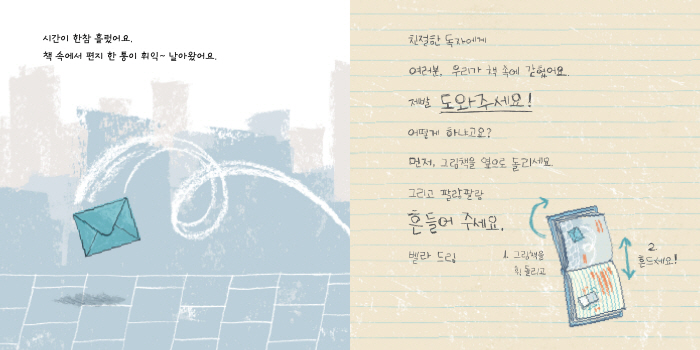 시간이 한참 흘렀어요.
책 속에서 편지 한 통이 휘익~ 날아왔어요.
친절한 독자에게
여러분, 우리가 책 속에 갇혔어요.
제발 도와주세요!
어떻게 하냐고요?
먼저, 그림책을 옆으로 돌리세요
그리고 팔랑팔랑
흔들어 주세요.
벨라 드림
1. 그림책을
휙 돌리고
2
흔드세요!